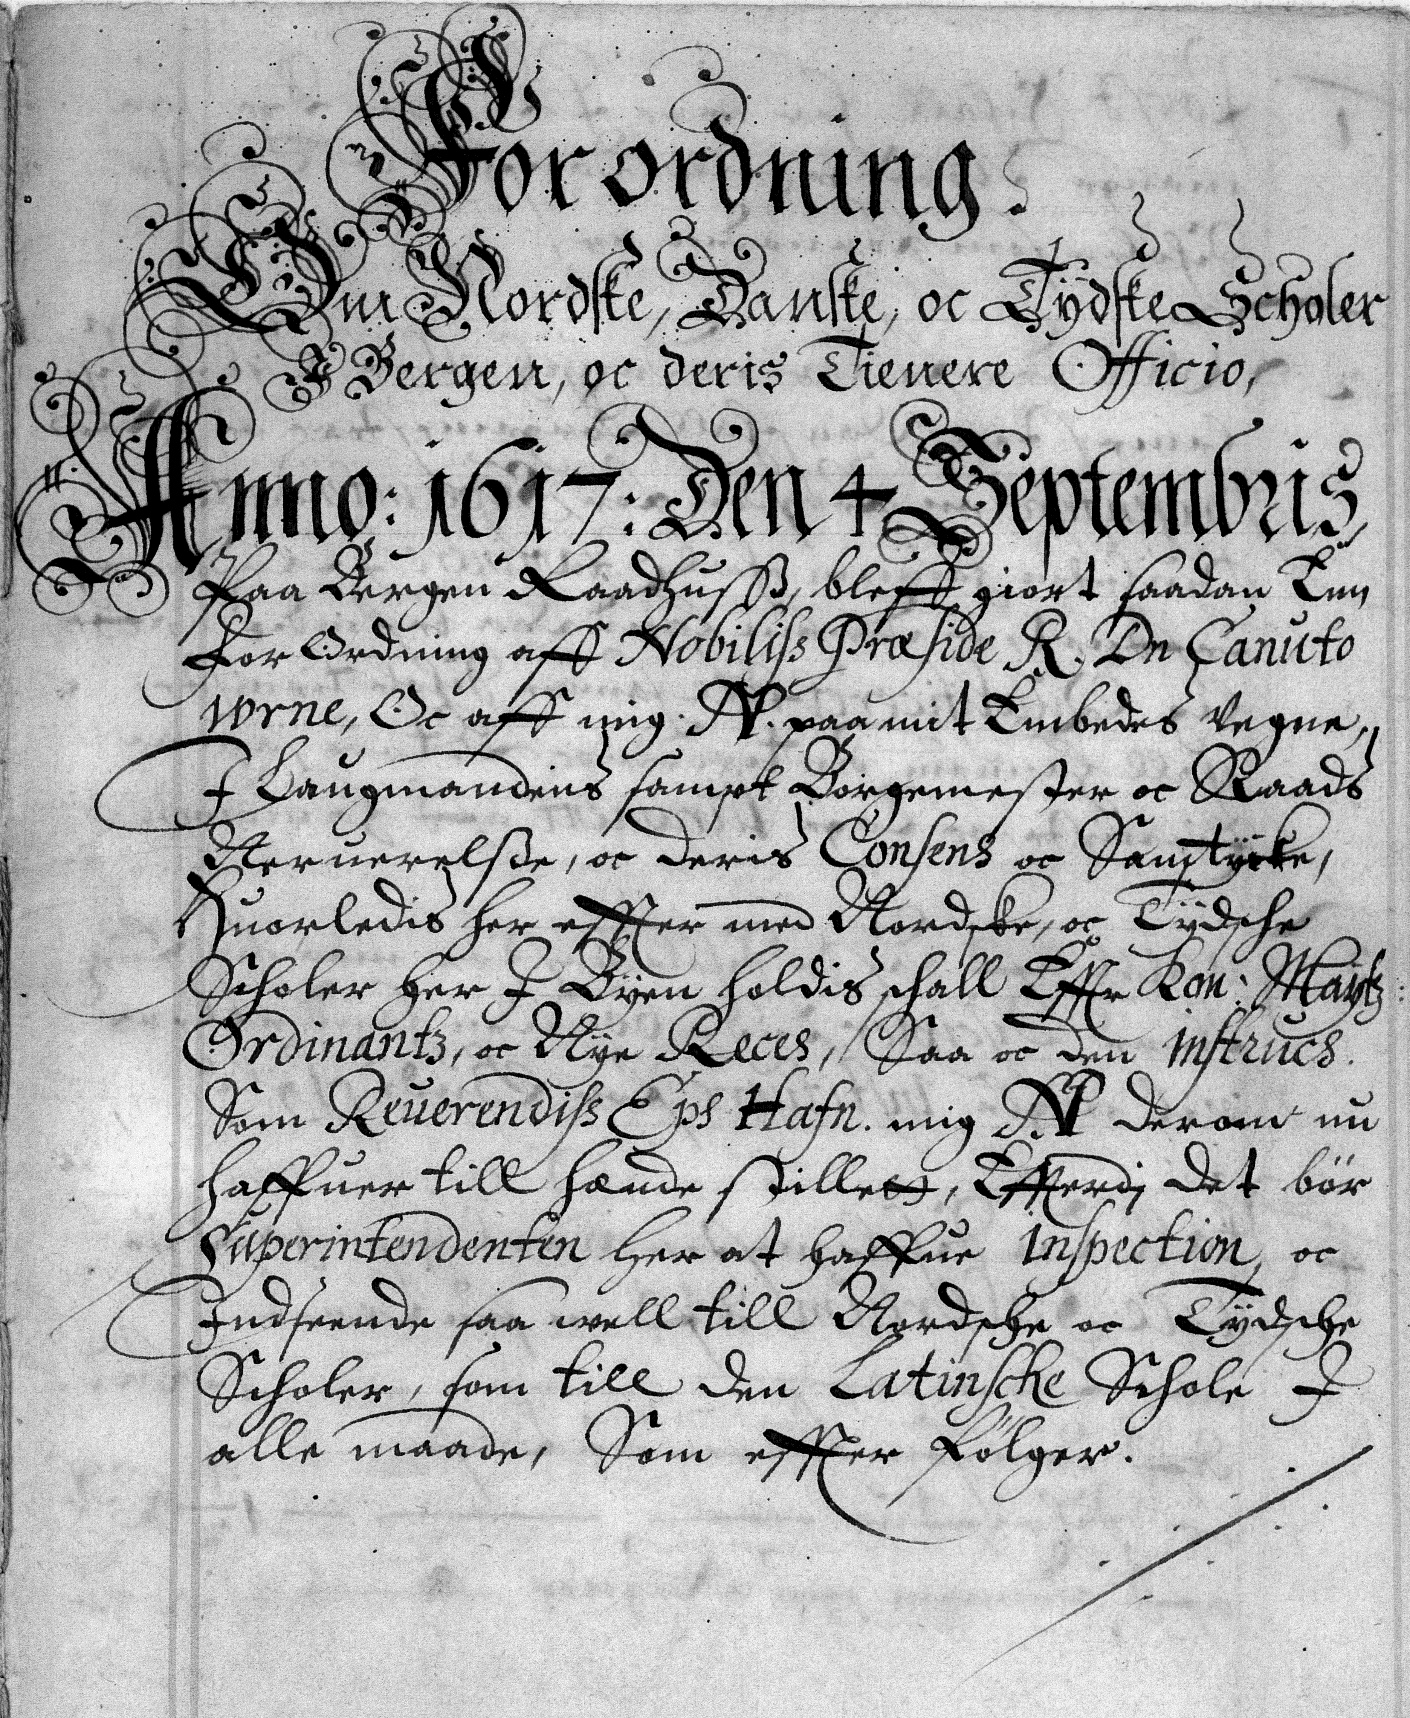 Forordning.
Om Nordske, Danske, oc Tÿdske Scholer
I Bergen, oc deris Tienere Officio,
Anno: 1617: Den 4 Septembris,
Paa Bergen Raadhuss, bleff giort saadan Enn
For Ordning aff Nobiliss Præside R. Dn Canuto
wrne, Oc aff mig. N. paa mit Embedes Vegne,
I Laugmandens sampt Borgemester oc Raads
Neruerelsse, oc deris Consens oc Samtÿcke,
Huorledis her effter med Nordske, oc Tÿdsche
Scholer her I Bÿen holdis schall Effter Kon: Maÿtz:
Ordinantz, oc Nÿe Reces, Saa oc den instrucs.
Som Reuerendiss Eps Hafn. mig N derom nu
haffuer till hænde stillet, Effterdj det bör
Superintendenten her at haffue inspection, oc
Indseende saa well till Nordsche oc Tÿdsche
Scholer, som till den Latinscke Schole I
alle maade, Som effter følger.